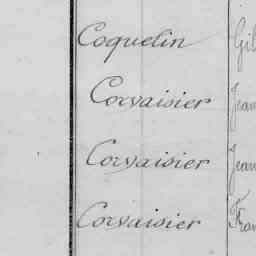 Coquelin Gil
Corvaisier Jean
Corvaisier Jean
Corvaisier Fran